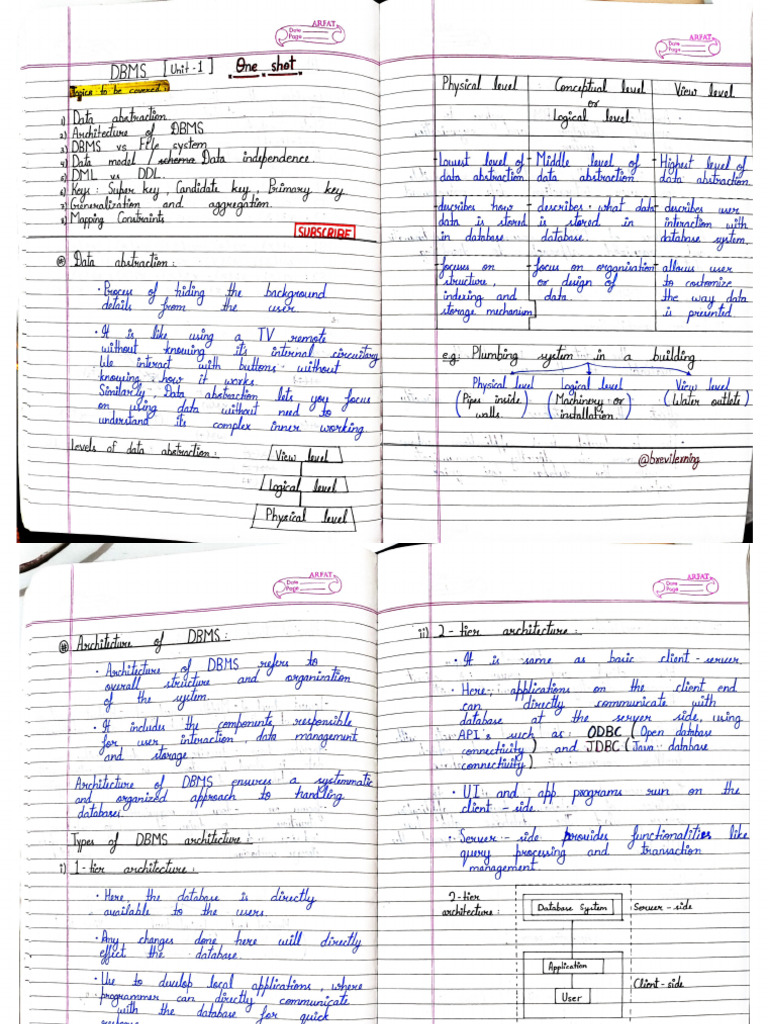 ARFAT
Date
Page
DBMS [Unit-1] One shot
Topics to be covered:
1) Data abstraction
2) Architecture of DBMS
3) DBMS vs File system
4) Data model / schema Data independence.
5) DML vs DDL.
6) Keys: Super key, Candidate key, Primary key
7) Generalization and aggregation.
8) Mapping Constraints
SUBSCRIBE
Data abstraction:
• Process of hiding the background
details from the user.
• It is like using a TV remote
without knowing its internal circuitry
We interact with buttons without
knowing how it works.
Similarly, Data abstraction lets you focus
on using data without need to
understand its complex inner working.
Levels of data abstraction:
View level
Logical level
Physical level
ARFAT
Date
Page
Physical level
Conceptual level
or
Logical level
View level
- Lowest level of
data abstraction
- Middle level of
data abstraction
- Highest level of
data abstraction.
- describes how
data is stored
in database
- describes what data
is stored in
database.
- describes user
interaction with
database system.
- focus on
structure,
indexing and
storage mechanism
- focus on organisation
or design of
data.
- allows user
to customize
the way data
is presented
e.g: Plumbing system in a building
Physical level
(Pipes inside
walls)
Logical level
(Machinery or
installation)
View level
(Water outlets)
@brevilerning
ARFAT
Date
Page
# Architecture of DBMS:
• Architecture of DBMS refers to
overall structure and organization
of the system.
• It includes the components, responsible
for user interaction, data management
and storage.
Architecture of DBMS ensures a systemmatic
and organized approach to handling
databases.
Types of DBMS architecture:
i) 1-tier architecture:
• Here the database is directly
available to the users.
• Any changes done here will directly
effect the database.
• Use to develop local applications, where
programmer can directly communicate
with the database for quick
response.
ARFAT
Date
Page
ii) 2-tier architecture:
• It is same as basic client-server.
• Here, applications on the client end
can directly communicate with
database at the server side, using
API's such as: ODBC (Open databse
connectivity) and JDBC (Java database
connectivity).
• UI and app programs run on the
client-side.
• Server-side provides functionalities like
query processing and transaction
management.
2-tier
architecture:
Database System
Server-side
Application
User
Client-side